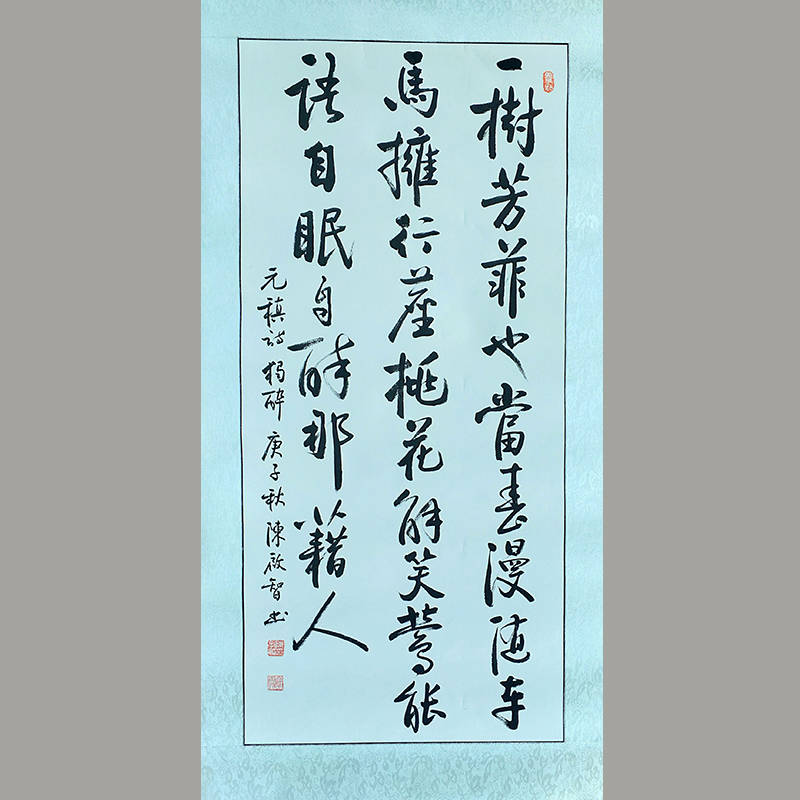 一樹芳菲也當春漫随车
馬擁行塵桃花解笑鶯能
語自眠自醉那籍人
元稹詩獨醉庚子秋陳啟智书